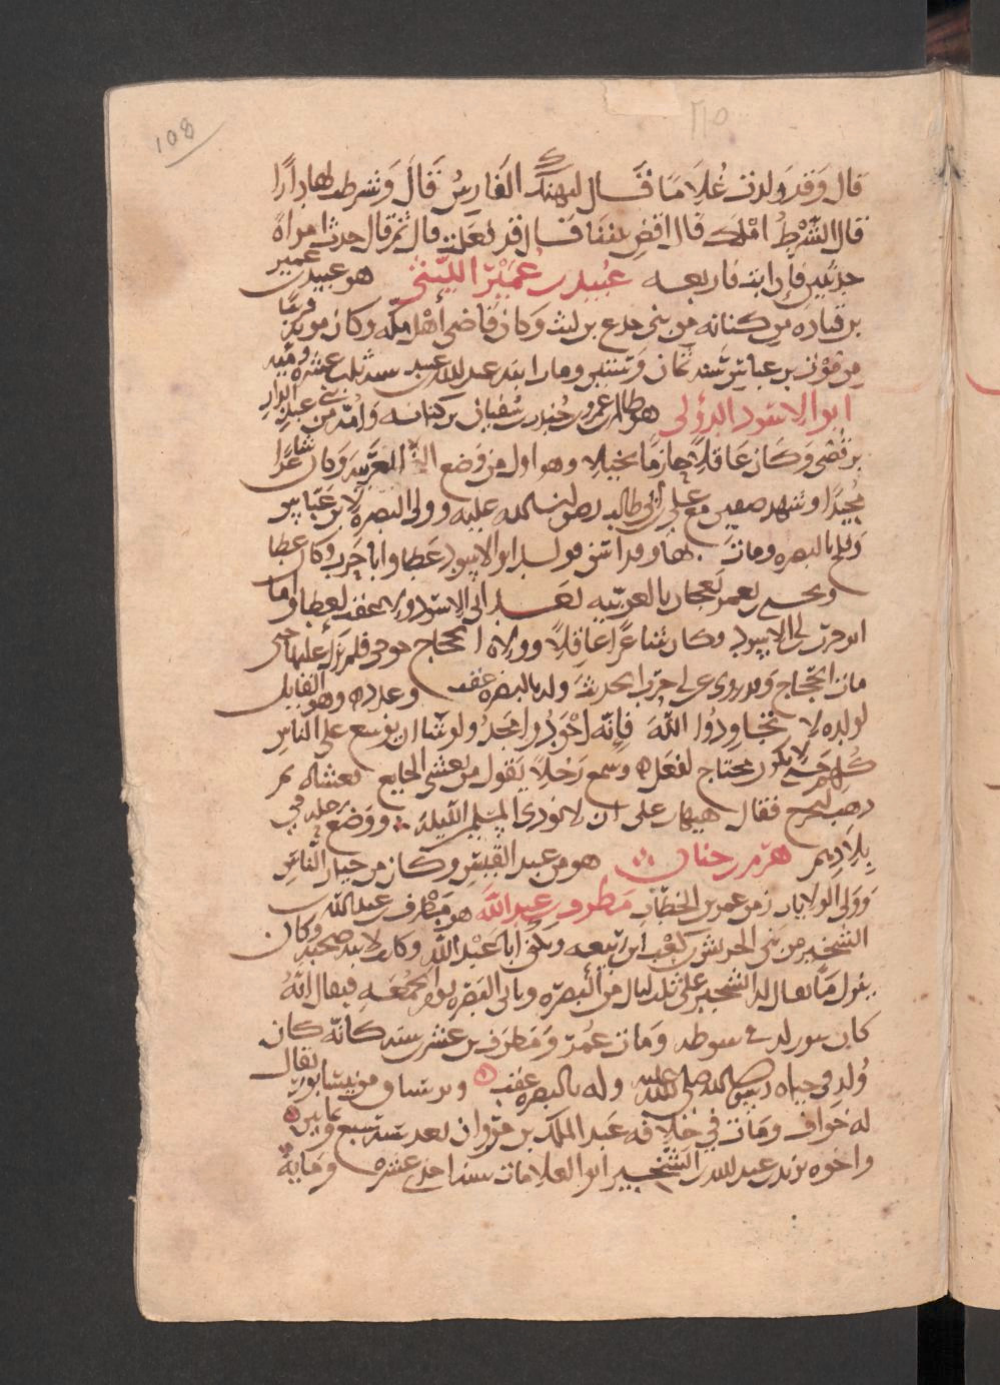 108
قال وقد ولدت غلاما فقال ليهنك الفارس قال وشرطت لها دارا
قال الشرط املك قال اقض بيننا فقال قد فعلت قال ثم قال حدث امراة
حديثين فان ابت فاربعه عبيد بن عمير الليثي هو عبيد بن عمير
بن قتاده من كنانه من بني جدع بن ليث وكان قاضي أهل مكه وكان موته قريبا
من موت بن عباس سنه ثمان وستين ومات ابنه عبد الله بن عبيد سنه ثلث عشره وميه
ابو الاسود الدؤلي هو ظالم بن عمرو بن جندل بن سفيان بن كنانه وامه من بني عبد الدار
بن قصي وكان عاقلا حازما بخيلا وهو اول من وضع العربيه وكان شاعرا
مجيدا وشهد صفين مع علي بن ابي طالب رضوان الله عليه وولي البصرة لابن عباس
وفلج بالبصره ومات بها وقد اسن فولد ابو الاسود عطا وابا حرب وكان عطا
ويحيى بن يعمر بعجان بالعربيه بعد ابي الاسود ولا عقب لعطا واما
ابو حرب بن ابي الاسود وكان شاعرا عاقلا وولاه الحجاج جوخى فلم يزل عليها حتى
مات الحجاج وقد روي عن ابي حرب الحديث وله بالبصره عقب وعدد وهو القايل
لولده لا تجاودوا الله فانه اجود وامجد ولو شا ان يوسع على الناس
كلهم حتى لا يكون محتاج لفعل وسمع رجلا يقول من يعشي الجايع فعشاه ثم
ذهب ليخرج فقال هيهات على ان لا توذي المسلمين الليله ووضع رجله في
الادهم هرم بن حيان هو من عبد القيس وكان من خيار الناس
وولي الولايات زمن عمر بن الخطاب مطرف بن عبد الله هو مطرف بن عبد الله بن
الشخير من بني الحريش بن كعب بن ربيعه ويكنى ابا عبد الله وكان لابيه صحبه وكان
ينزل ما يقال له الشخير على ثلث ليال من البصره وياتي البصره يوم الجمعه فيقال انه
كان ينور له في سوطه ومات عمر ومطرف بن عشرين سنه كانه كان
ولد في حياه رسول الله صلى الله عليه وله بالبصره عقب وبرستاق من نيسابور يقال
له خواف ومات في خلافه عبد الملك بن مروان بعد سنه سبع وثمانين
واخوه يزيد بن عبد الله بن الشخير ابو العلا مات سنه احدى عشره ومايه